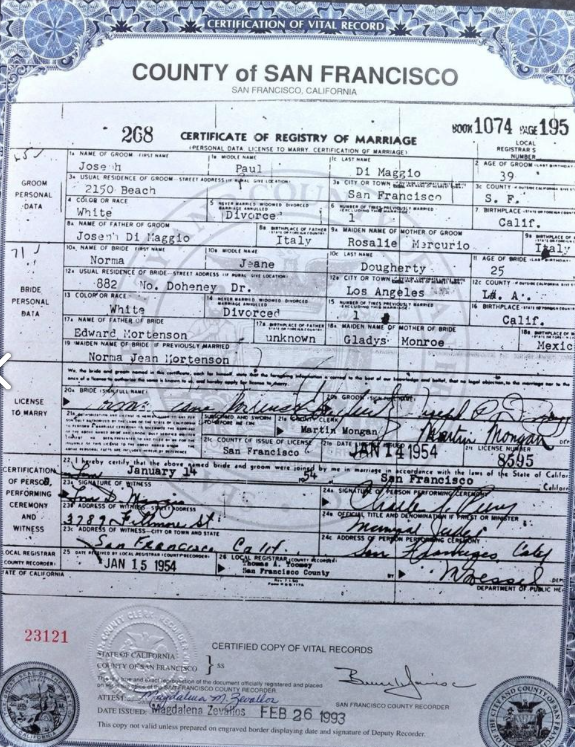 CERTIFICATION OF VITAL RECORD
COUNTY of SAN FRANCISCO
SAN FRANCISCO, CALIFORNIA
268 CERTIFICATE OF REGISTRY OF MARRIAGE BOOK 1074 PAGE 195
(PERSONAL DATA, LICENSE TO MARRY, CERTIFICATION OF MARRIAGE) LOCAL REGISTRAR'S NUMBER
GROOM PERSONAL DATA
1a NAME OF GROOM FIRST NAME 1b MIDDLE NAME 1c LAST NAME 2 AGE OF GROOM
Joseph Paul Di Maggio 39
3a USUAL RESIDENCE OF GROOM STREET ADDRESS 3b CITY OR TOWN 3c COUNTY
2150 Beach San Francisco S. F.
4 COLOR OR RACE 5 NEVER MARRIED WIDOWED DIVORCED 7 BIRTHPLACE
White Divorce Calif.
8a NAME OF FATHER OF GROOM 8b BIRTHPLACE OF FATHER 9a MAIDEN NAME OF MOTHER OF GROOM
Joseph Di Maggio Italy Rosalie Mercurio Italy
BRIDE PERSONAL DATA
10a NAME OF BRIDE FIRST NAME 10b MIDDLE NAME 10c LAST NAME 11 AGE OF BRIDE
Norma Jeane Dougherty 25
12a USUAL RESIDENCE OF BRIDE STREET ADDRESS 12b CITY OR TOWN 12c COUNTY
882 No. Doheney Dr. Los Angeles L. A.
13 COLOR OR RACE 14 NEVER MARRIED WIDOWED DIVORCED 15 NUMBER OF TIMES PREVIOUSLY MARRIED 16 BIRTHPLACE
White Divorced 1 Calif.
17a NAME OF FATHER OF BRIDE 17b BIRTHPLACE OF FATHER 18a MAIDEN NAME OF MOTHER OF BRIDE
Edward Mortenson unknown Gladys Monroe Mexic
19 MAIDEN NAME OF BRIDE IF PREVIOUSLY MARRIED
Norma Jean Mortenson
LICENSE TO MARRY
20a BRIDE 20b GROOM
Martin Mongan Martin Mongan
21c COUNTY OF ISSUE OF LICENSE LICENSE NUMBER
San Francisco JAN 14 1954 8595
CERTIFICATION OF PERSON PERFORMING CEREMONY AND WITNESS
22 I hereby certify that the above named bride and groom were joined by me in marriage in accordance with the laws of the State of California
January 14 54 San Francisco
23a SIGNATURE OF WITNESS 24a SIGNATURE OF PERSON PERFORMING CEREMONY
23b ADDRESS OF WITNESS STREET ADDRESS 24b OFFICIAL TITLE AND DENOMINATION IF PRIEST OR MINISTER
Fillmore St. Municipal Judge
23c ADDRESS OF WITNESS CITY OR TOWN AND STATE 24c ADDRESS OF PERSON PERFORMING CEREMONY
San Francisco Calif San Francisco Calif
LOCAL REGISTRAR 25 DATE RECEIVED BY LOCAL REGISTRAR 26 LOCAL REGISTRAR
(COUNTY RECORDER) JAN 15 1954 Thomas A. Toomey
San Francisco County
STATE OF CALIFORNIA DEPARTMENT OF PUBLIC HE
23121
CERTIFIED COPY OF VITAL RECORDS
STATE OF CALIFORNIA
COUNTY OF SAN FRANCISCO } SS
This is a true and exact reproduction of the document officially registered and placed
on file in the office of the SAN FRANCISCO COUNTY RECORDER
ATTEST: Magdalena M Zevallos SAN FRANCISCO COUNTY RECORDER
Magdalena Zevallos
DATE ISSUED: FEB 26 1993
This copy not valid unless prepared on engraved border displaying date and signature of Deputy Recorder.